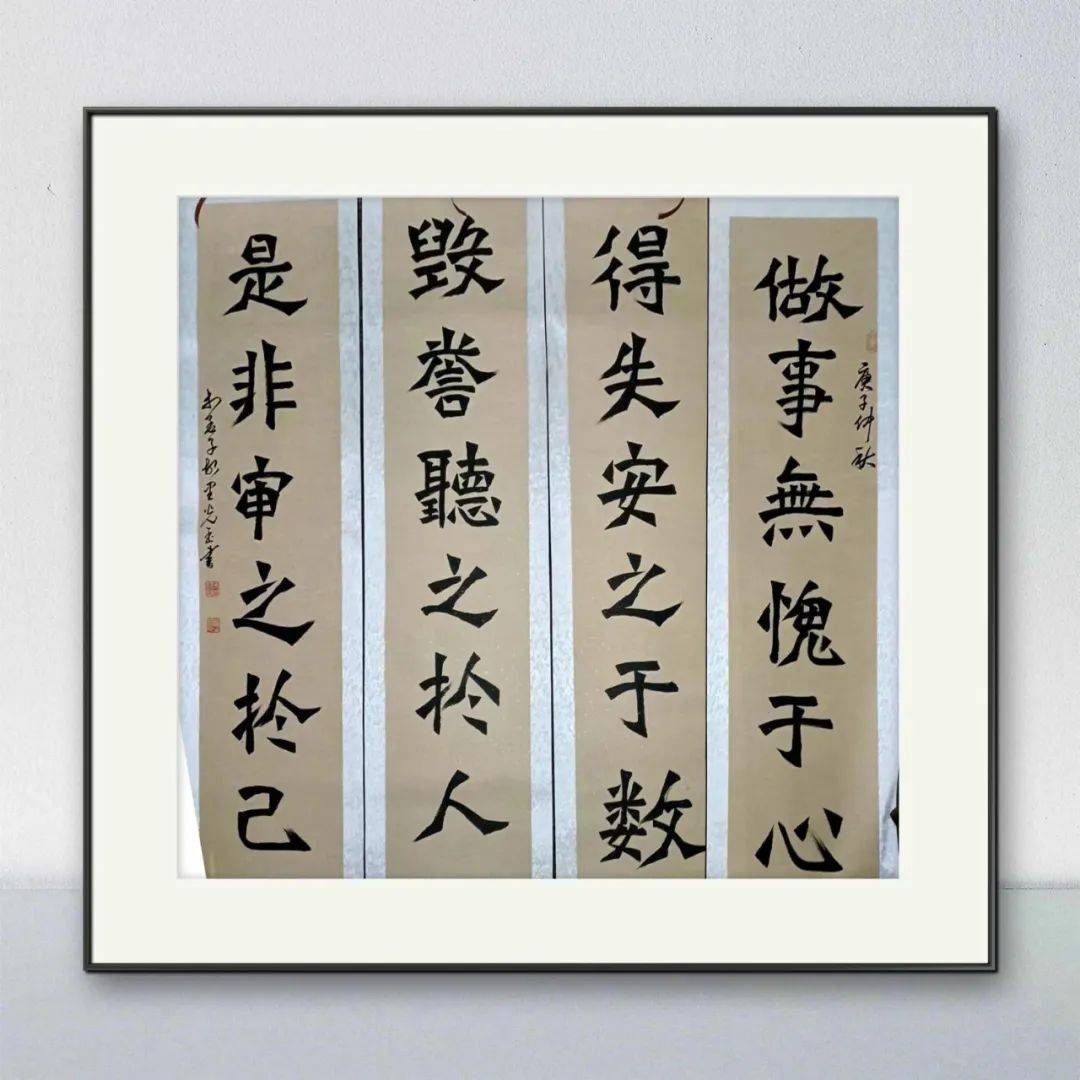 做事無愧于心
庚子仲秋
得失安之于数
毁誉聽之於人
是非审之於己